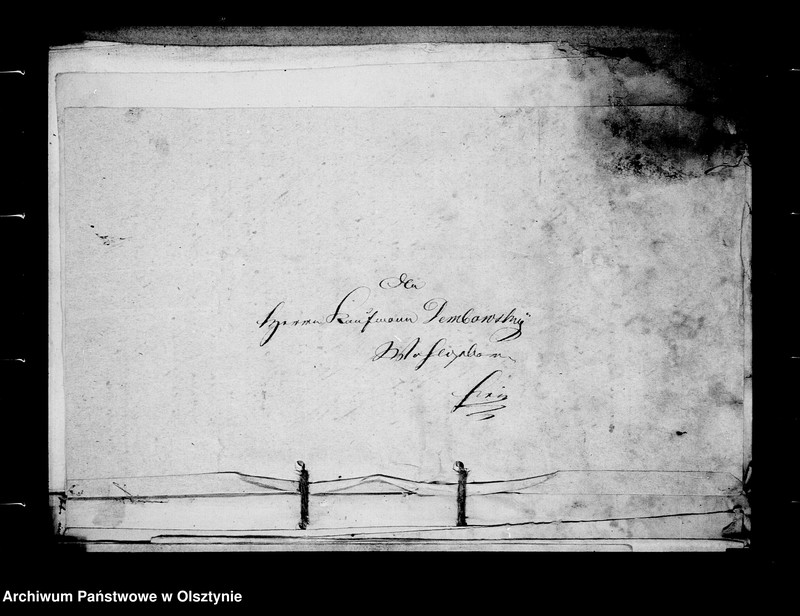 An
Herrn Kaufmann Dembowsky
frei
Archiwum Państwowe w Olsztynie